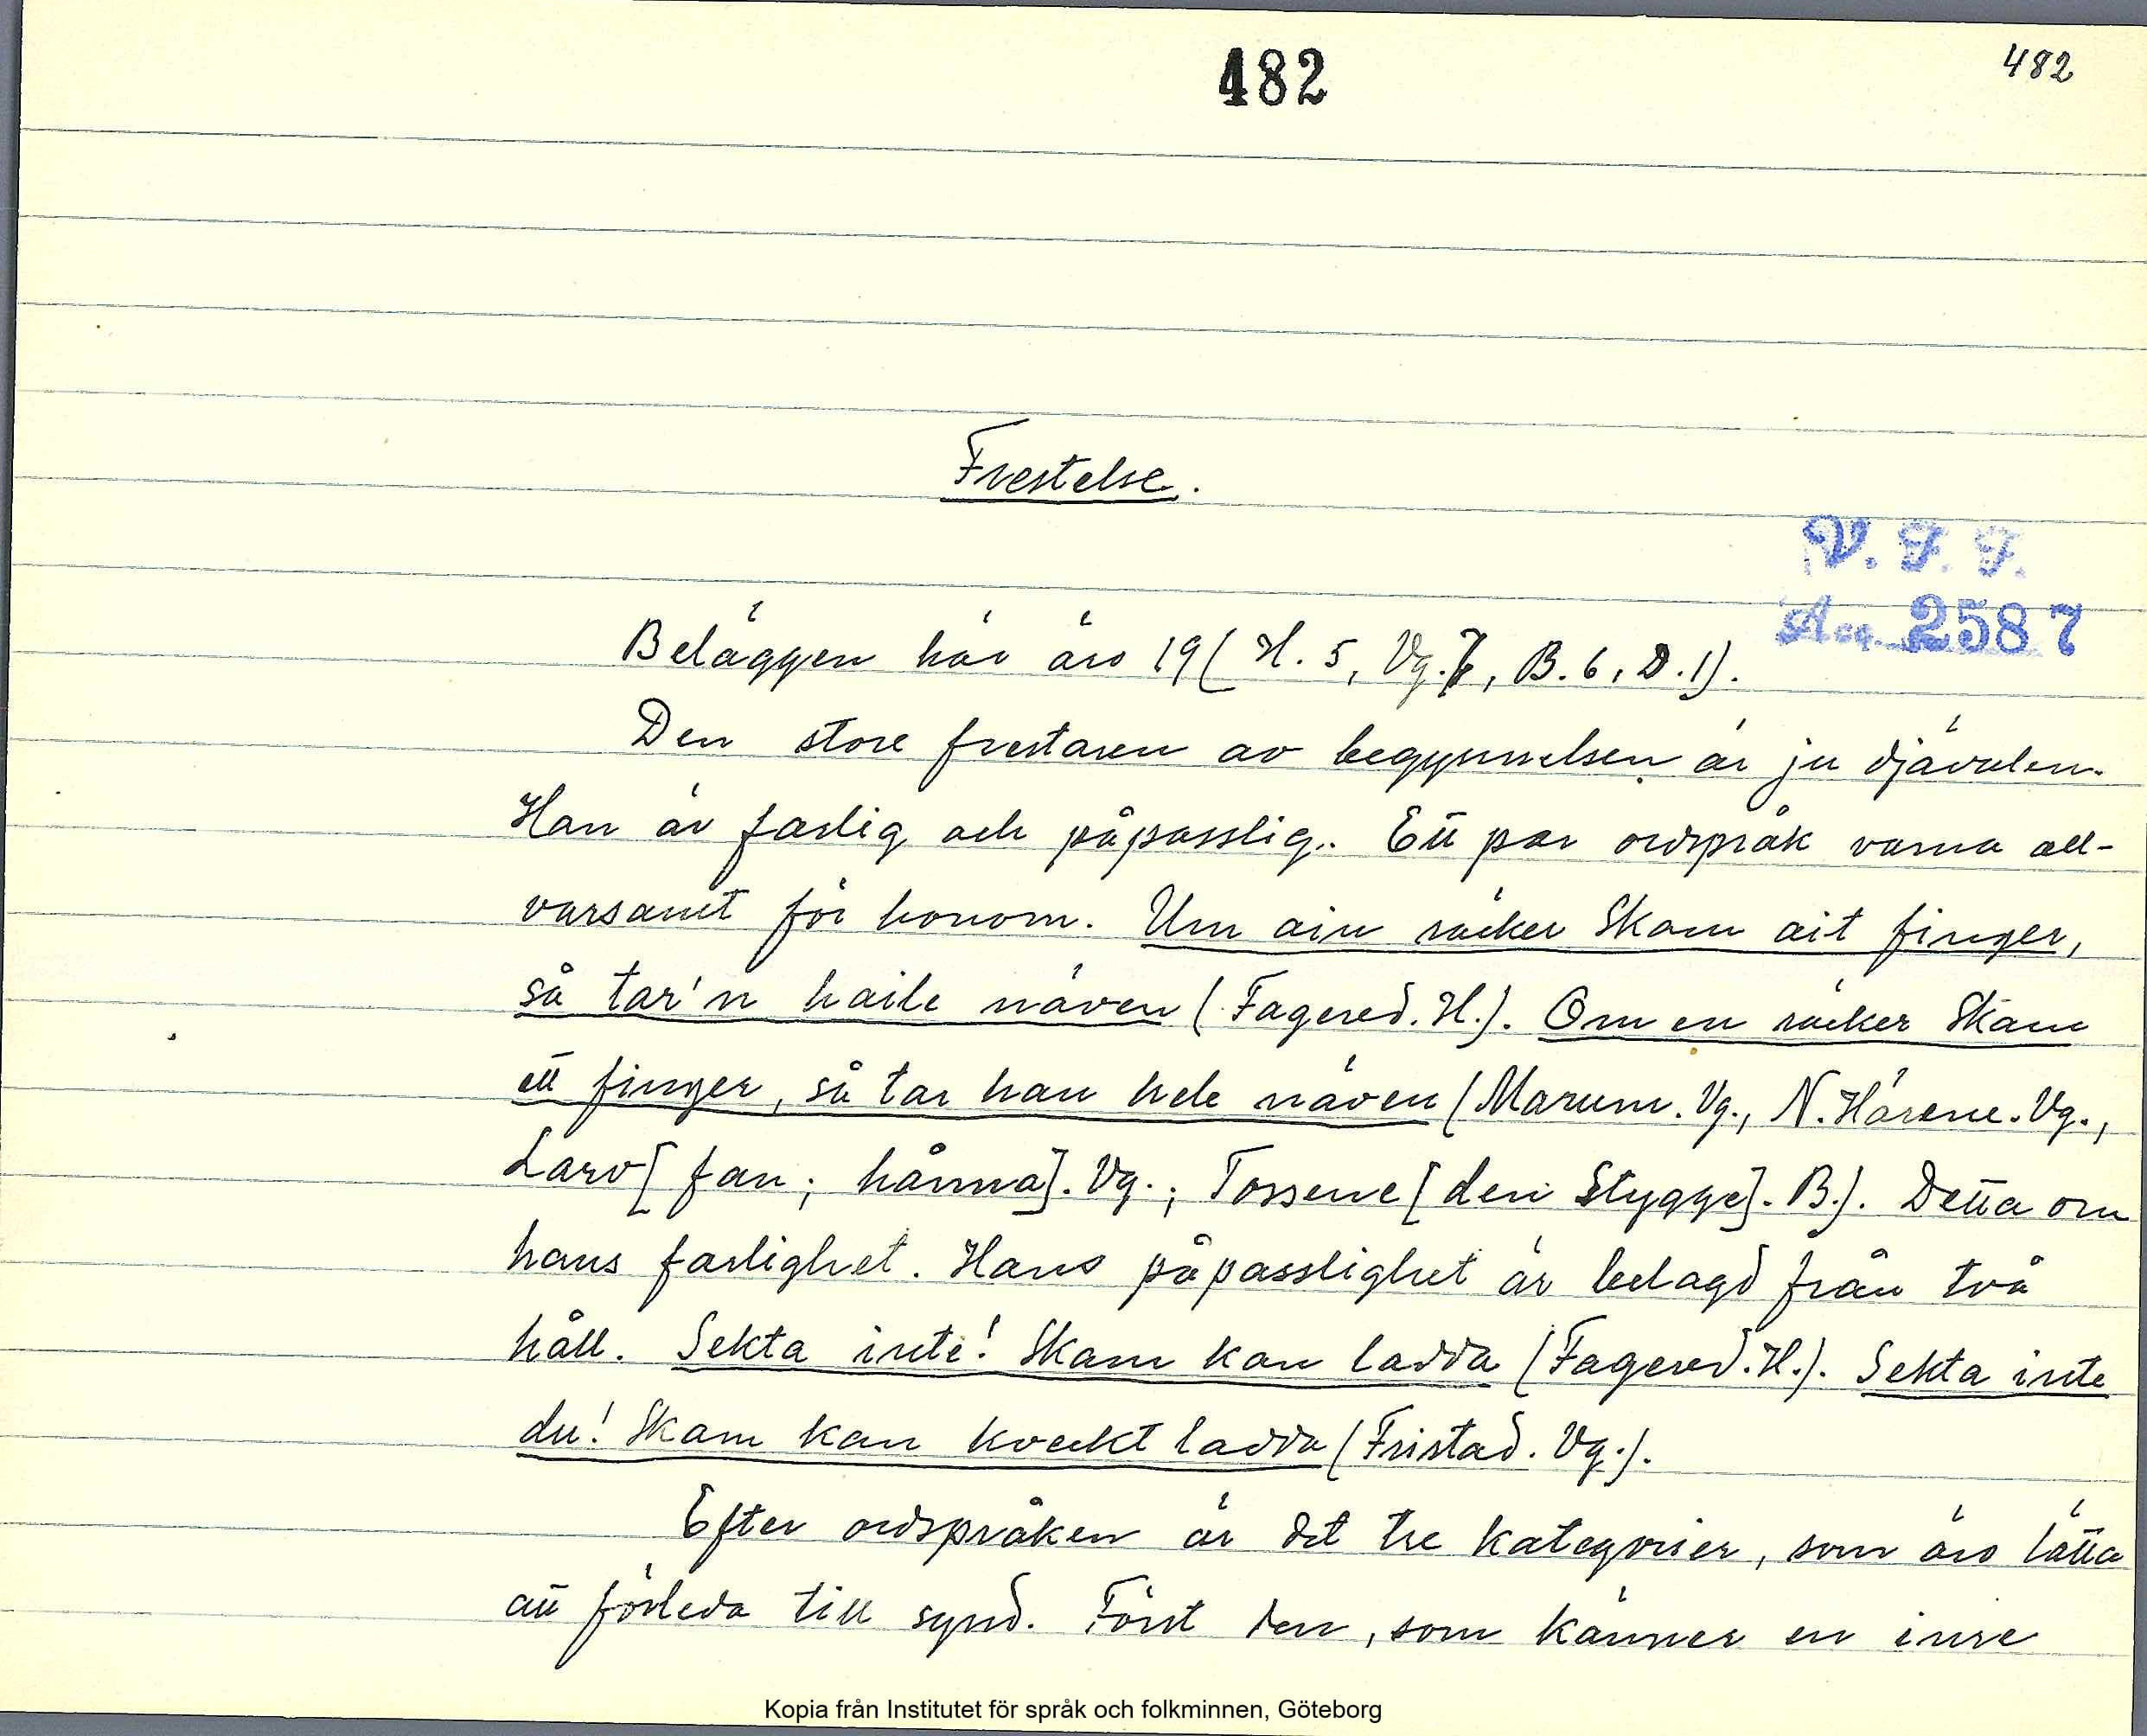 482
482
Frestelse.
V. F. F.
Acc. 2587
Beläggen här äro 19 (H. 5, Vg. 7, B. 6, D. 1).
Den store frestaren av begynnelsen är ju djävulen.
Han är farlig och påpasslig. Ett par ordspråk varna all-
varsamt för honom. Um ain räcker Skam ait finger,
så tar'n haile näven (Fagered. H.). Om en räcker Skam
ett finger, så tar han hele näven (Marum. Vg., N. Härene. Vg.,
Larv [fan; hånna]. Vg.; Tossene [den Stygge]. B.). Detta om
hans farlighet. Hans påpasslighet är belagd från två
håll. Sekta inte! Skam kan ladda (Fagered. H.). Sekta inte
du! Skam kan kveckt ladda (Fristad. Vg.).
Efter ordspråken är det tre kategorier, som äro lätta
att förleda till synd. Först den, som känner en inre
Kopia från Institutet för språk och folkminnen, Göteborg